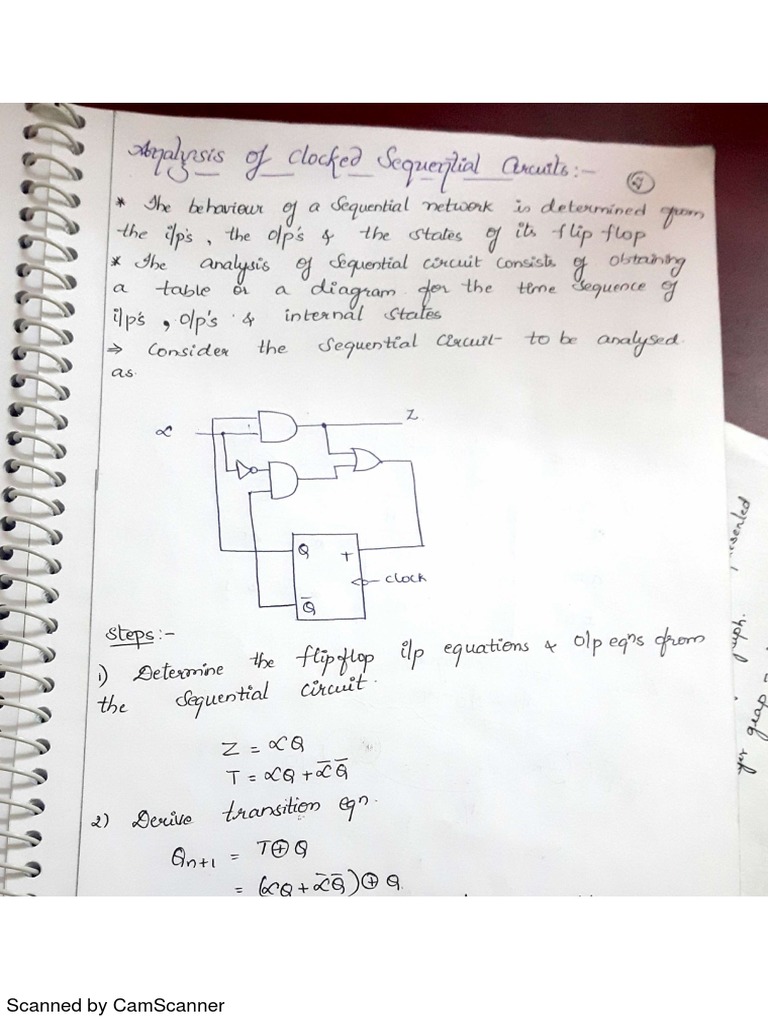 Analysis of Clocked Sequential Circuits:-
* The behaviour of a Sequential network is determined from
the i/p's, the o/p's & the states of its flip flop
* The analysis of Sequential circuit consists of obtaining
a table or a diagram for the time sequence of
i/p's, o/p's & internal States
⇒ Consider the Sequential Circuit to be analysed
as.
x
Z
Q
T
clock
Q̅
Steps:-
1) Determine the flipflop i/p equations & o/p eqns from
the Sequential circuit.
Z = xQ
T = xQ + x̅Q̅
2) Derive transition eqn.
Qn+1 = T⊕Q
= (xQ + x̅Q̅)⊕Q
graph.
Scanned by CamScanner